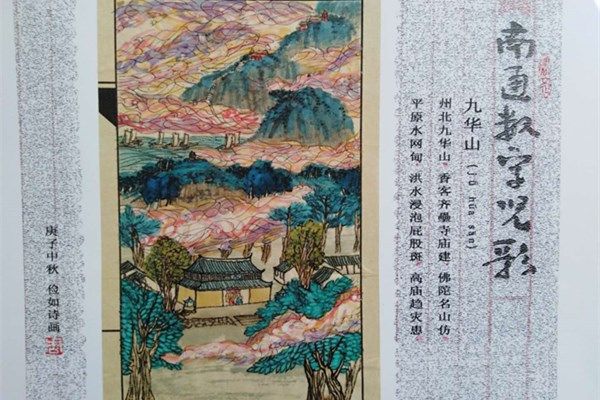 南通数字儿歌
九华山 (jǔ hūa sān)
州北九华山·香客齐壘寺庙建·佛陀名山仿
平原水网甸·洪水浸泡屁股斑·高庙趋灾患·
庚子中秋 俭如诗画